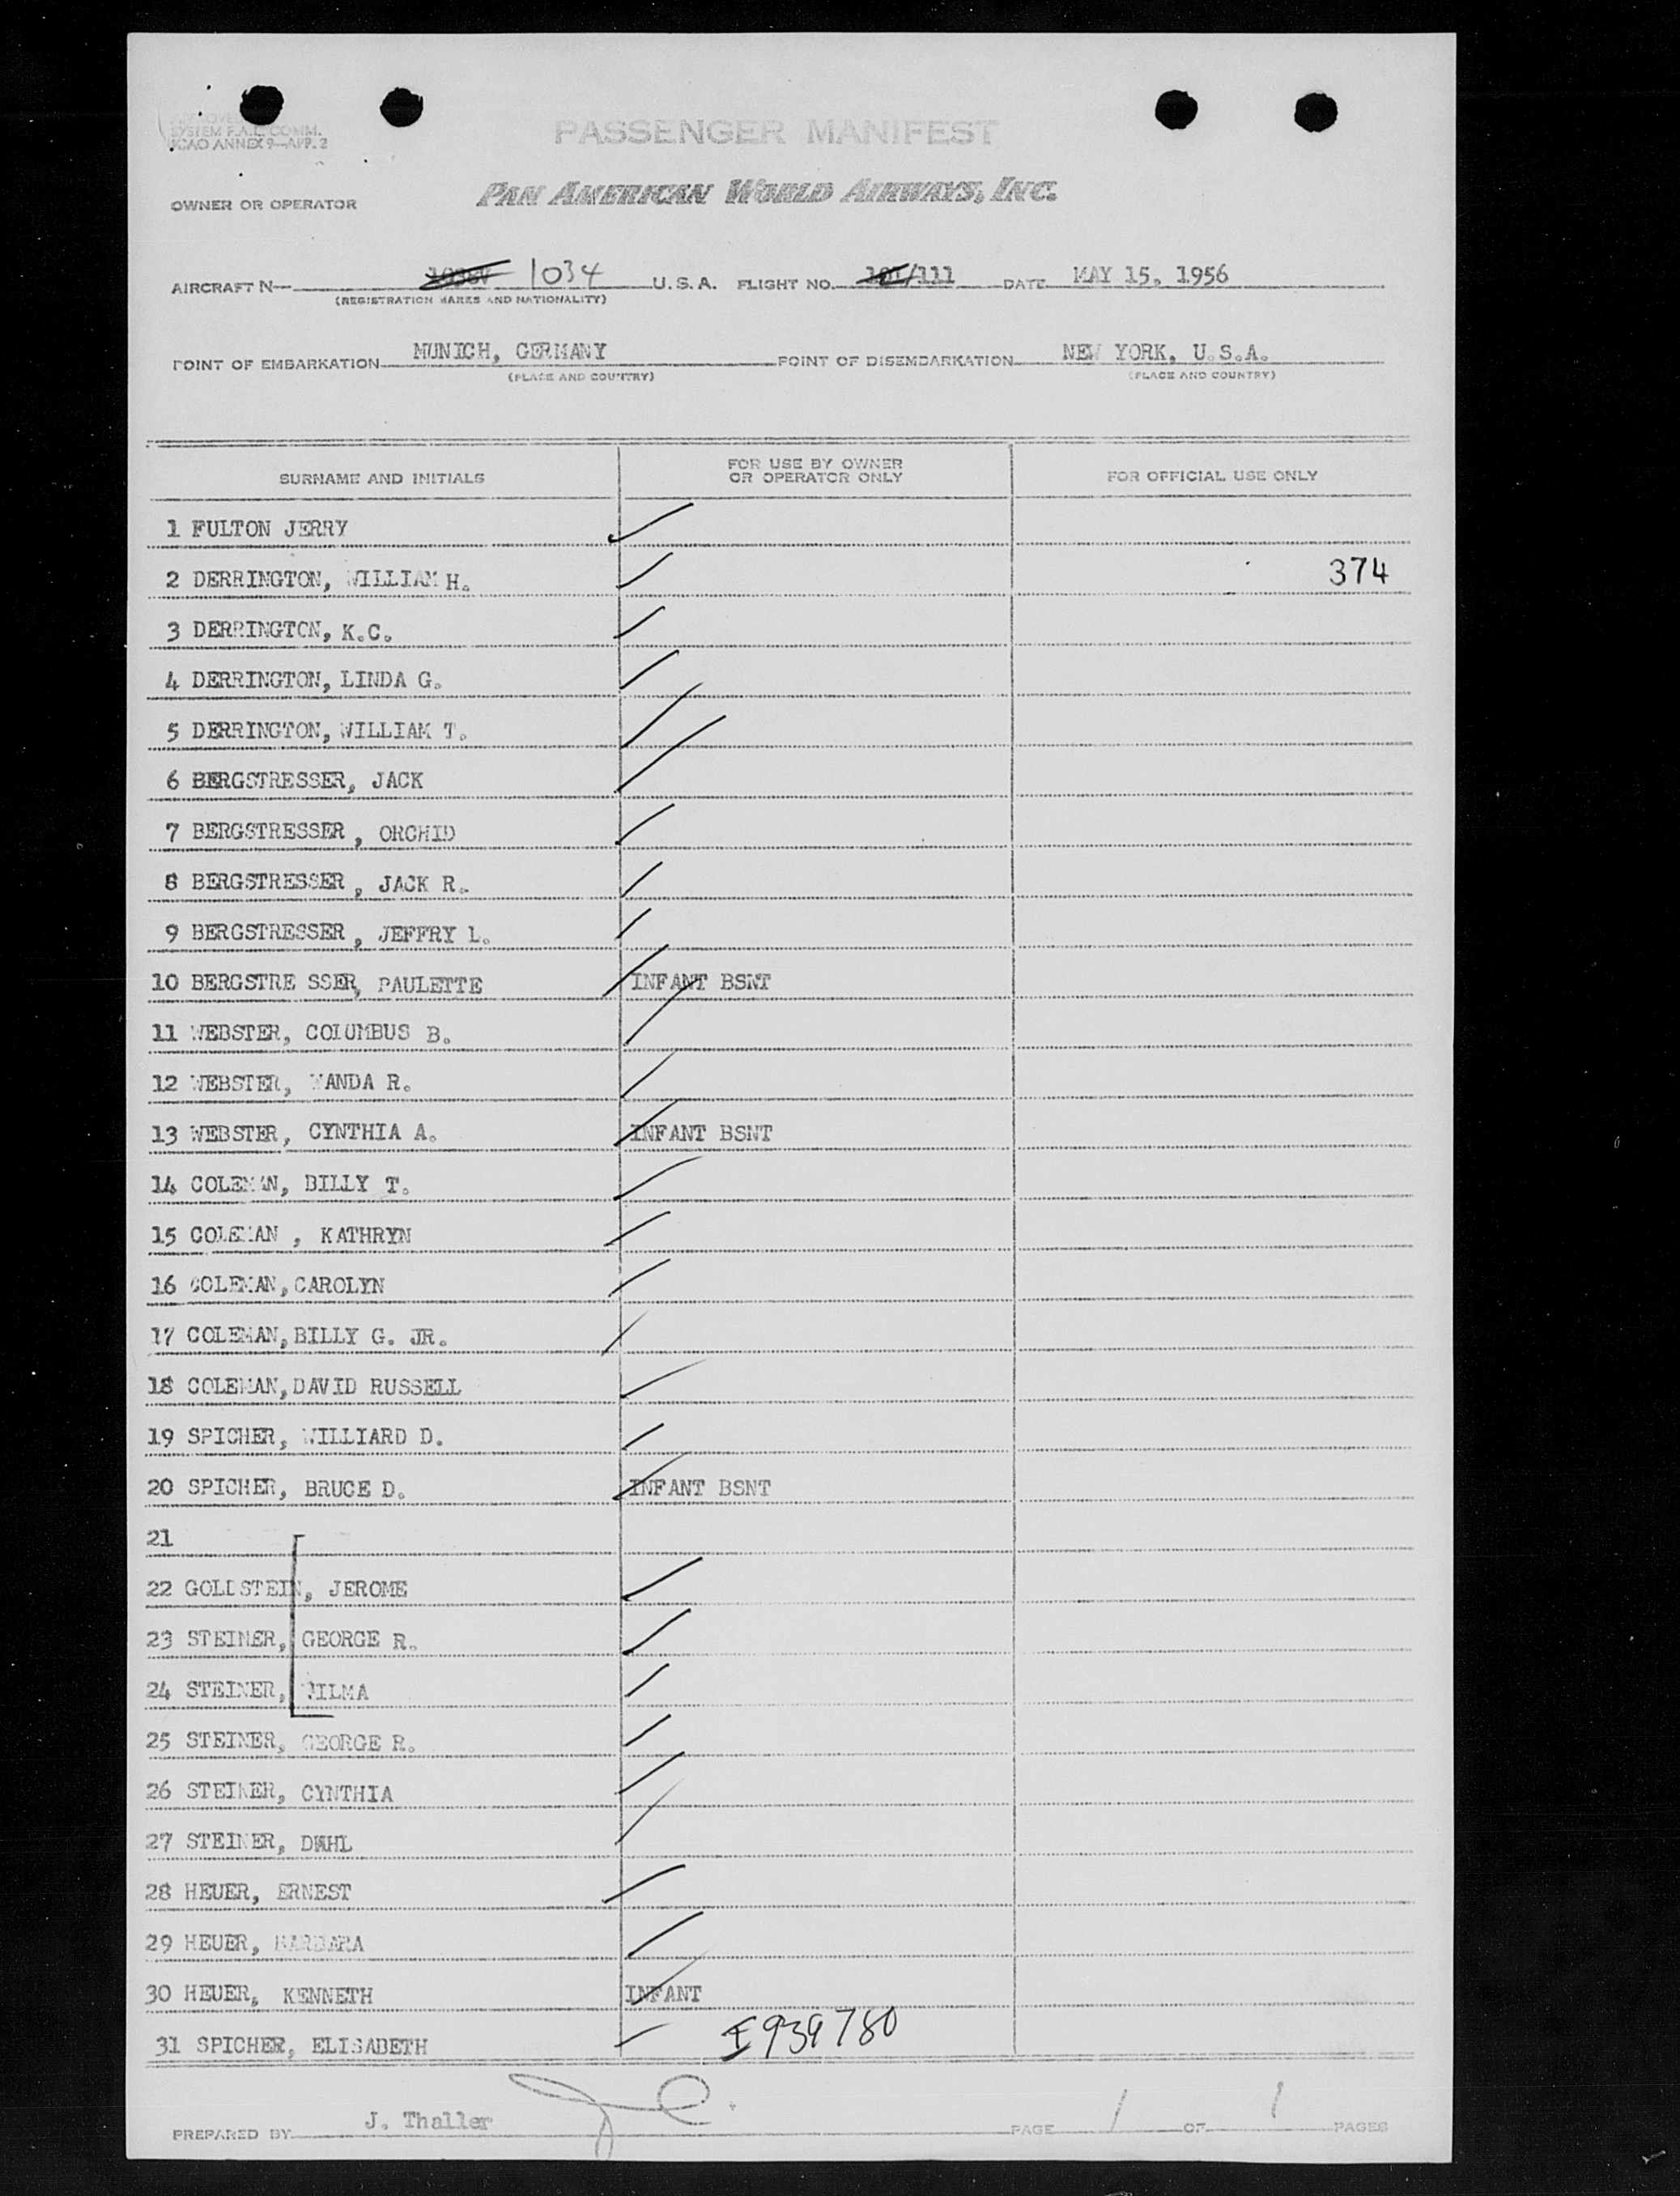 SYSTEM F.A.L. COMM.
ICAO ANNEX 9—APP. 2
PASSENGER MANIFEST
OWNER OR OPERATOR PAN AMERICAN WORLD AIRWAYS, INC.
AIRCRAFT N— 1034 U.S.A. FLIGHT NO. 101/111 DATE MAY 15, 1956
(REGISTRATION MARKS AND NATIONALITY)
POINT OF EMBARKATION MUNICH, GERMANY POINT OF DISEMBARKATION NEW YORK, U.S.A.
(PLACE AND COUNTRY) (PLACE AND COUNTRY)
SURNAME AND INITIALS FOR USE BY OWNER OR OPERATOR ONLY FOR OFFICIAL USE ONLY
1 FULTON JERRY
2 DERRINGTON, WILLIAM H. 374
3 DERRINGTON, K.C.
4 DERRINGTON, LINDA G.
5 DERRINGTON, WILLIAM T.
6 BERGSTRESSER, JACK
7 BERGSTRESSER, ORCHID
8 BERGSTRESSER, JACK R.
9 BERGSTRESSER, JEFFRY L.
10 BERGSTRE SSER, PAULETTE INFANT BSNT
11 WEBSTER, COLUMBUS B.
12 WEBSTER, WANDA R.
13 WEBSTER, CYNTHIA A. INFANT BSNT
14 COLEMAN, BILLY T.
15 COLEMAN , KATHRYN
16 COLEMAN, CAROLYN
17 COLEMAN, BILLY G. JR.
18 COLEMAN, DAVID RUSSELL
19 SPICHER, WILLIARD D.
20 SPICHER, BRUCE D. INFANT BSNT
21
22 GOLDSTEIN, JEROME
23 STEINER, GEORGE R.
24 STEINER, WILMA
25 STEINER, GEORGE R.
26 STEINER, CYNTHIA
27 STEINER, DAHL
28 HEUER, ERNEST
29 HEUER, BARBARA
30 HEUER, KENNETH INFANT
31 SPICHER, ELISABETH 939780
PREPARED BY J. Thaller PAGE 1 OF 1 PAGES